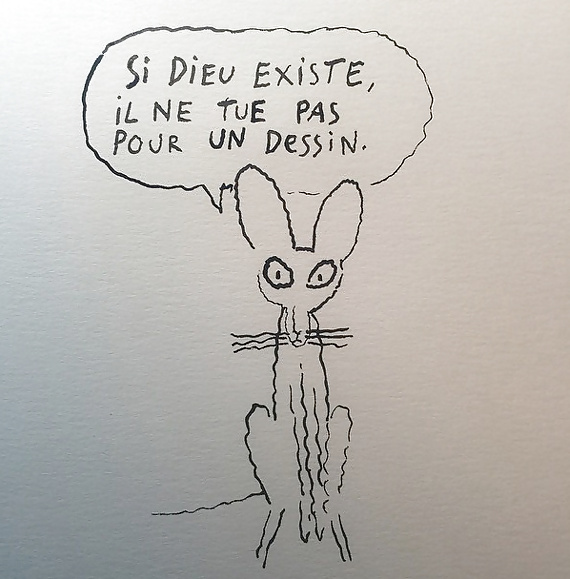 Si DiEU EXiSTE,
iL NE TUE PAS
POUR UN DESSiN.